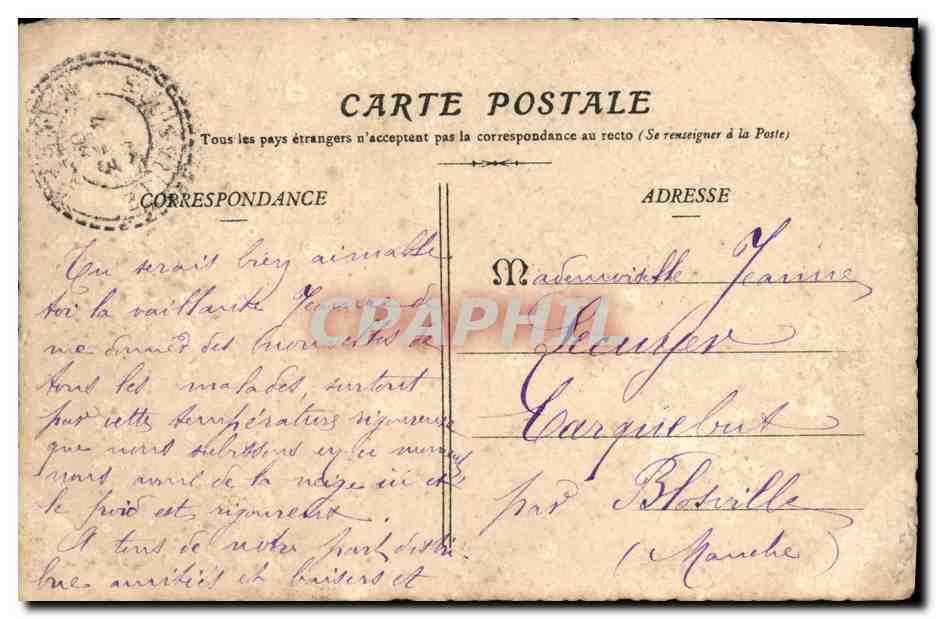 CARTE POSTALE
Tous les pays étrangers n'acceptent pas la correspondance au recto (Se renseigner à la Poste)
CORRESPONDANCE
Tu serais bien aimable
toi la vaillante Jeanne de
me donner des nouvelles de
tous les malades, surtout
par cette température rigoureuse
que nous subissons en ce moment,
nous avons de la neige ici et
le froid est rigoureux.
A tous de notre part distri-
bue amitiés et baisers et
ADRESSE
Mademoiselle Jeanne
Lecuyer
Carquebut
par Blosville
(Manche)
CPAPHIL